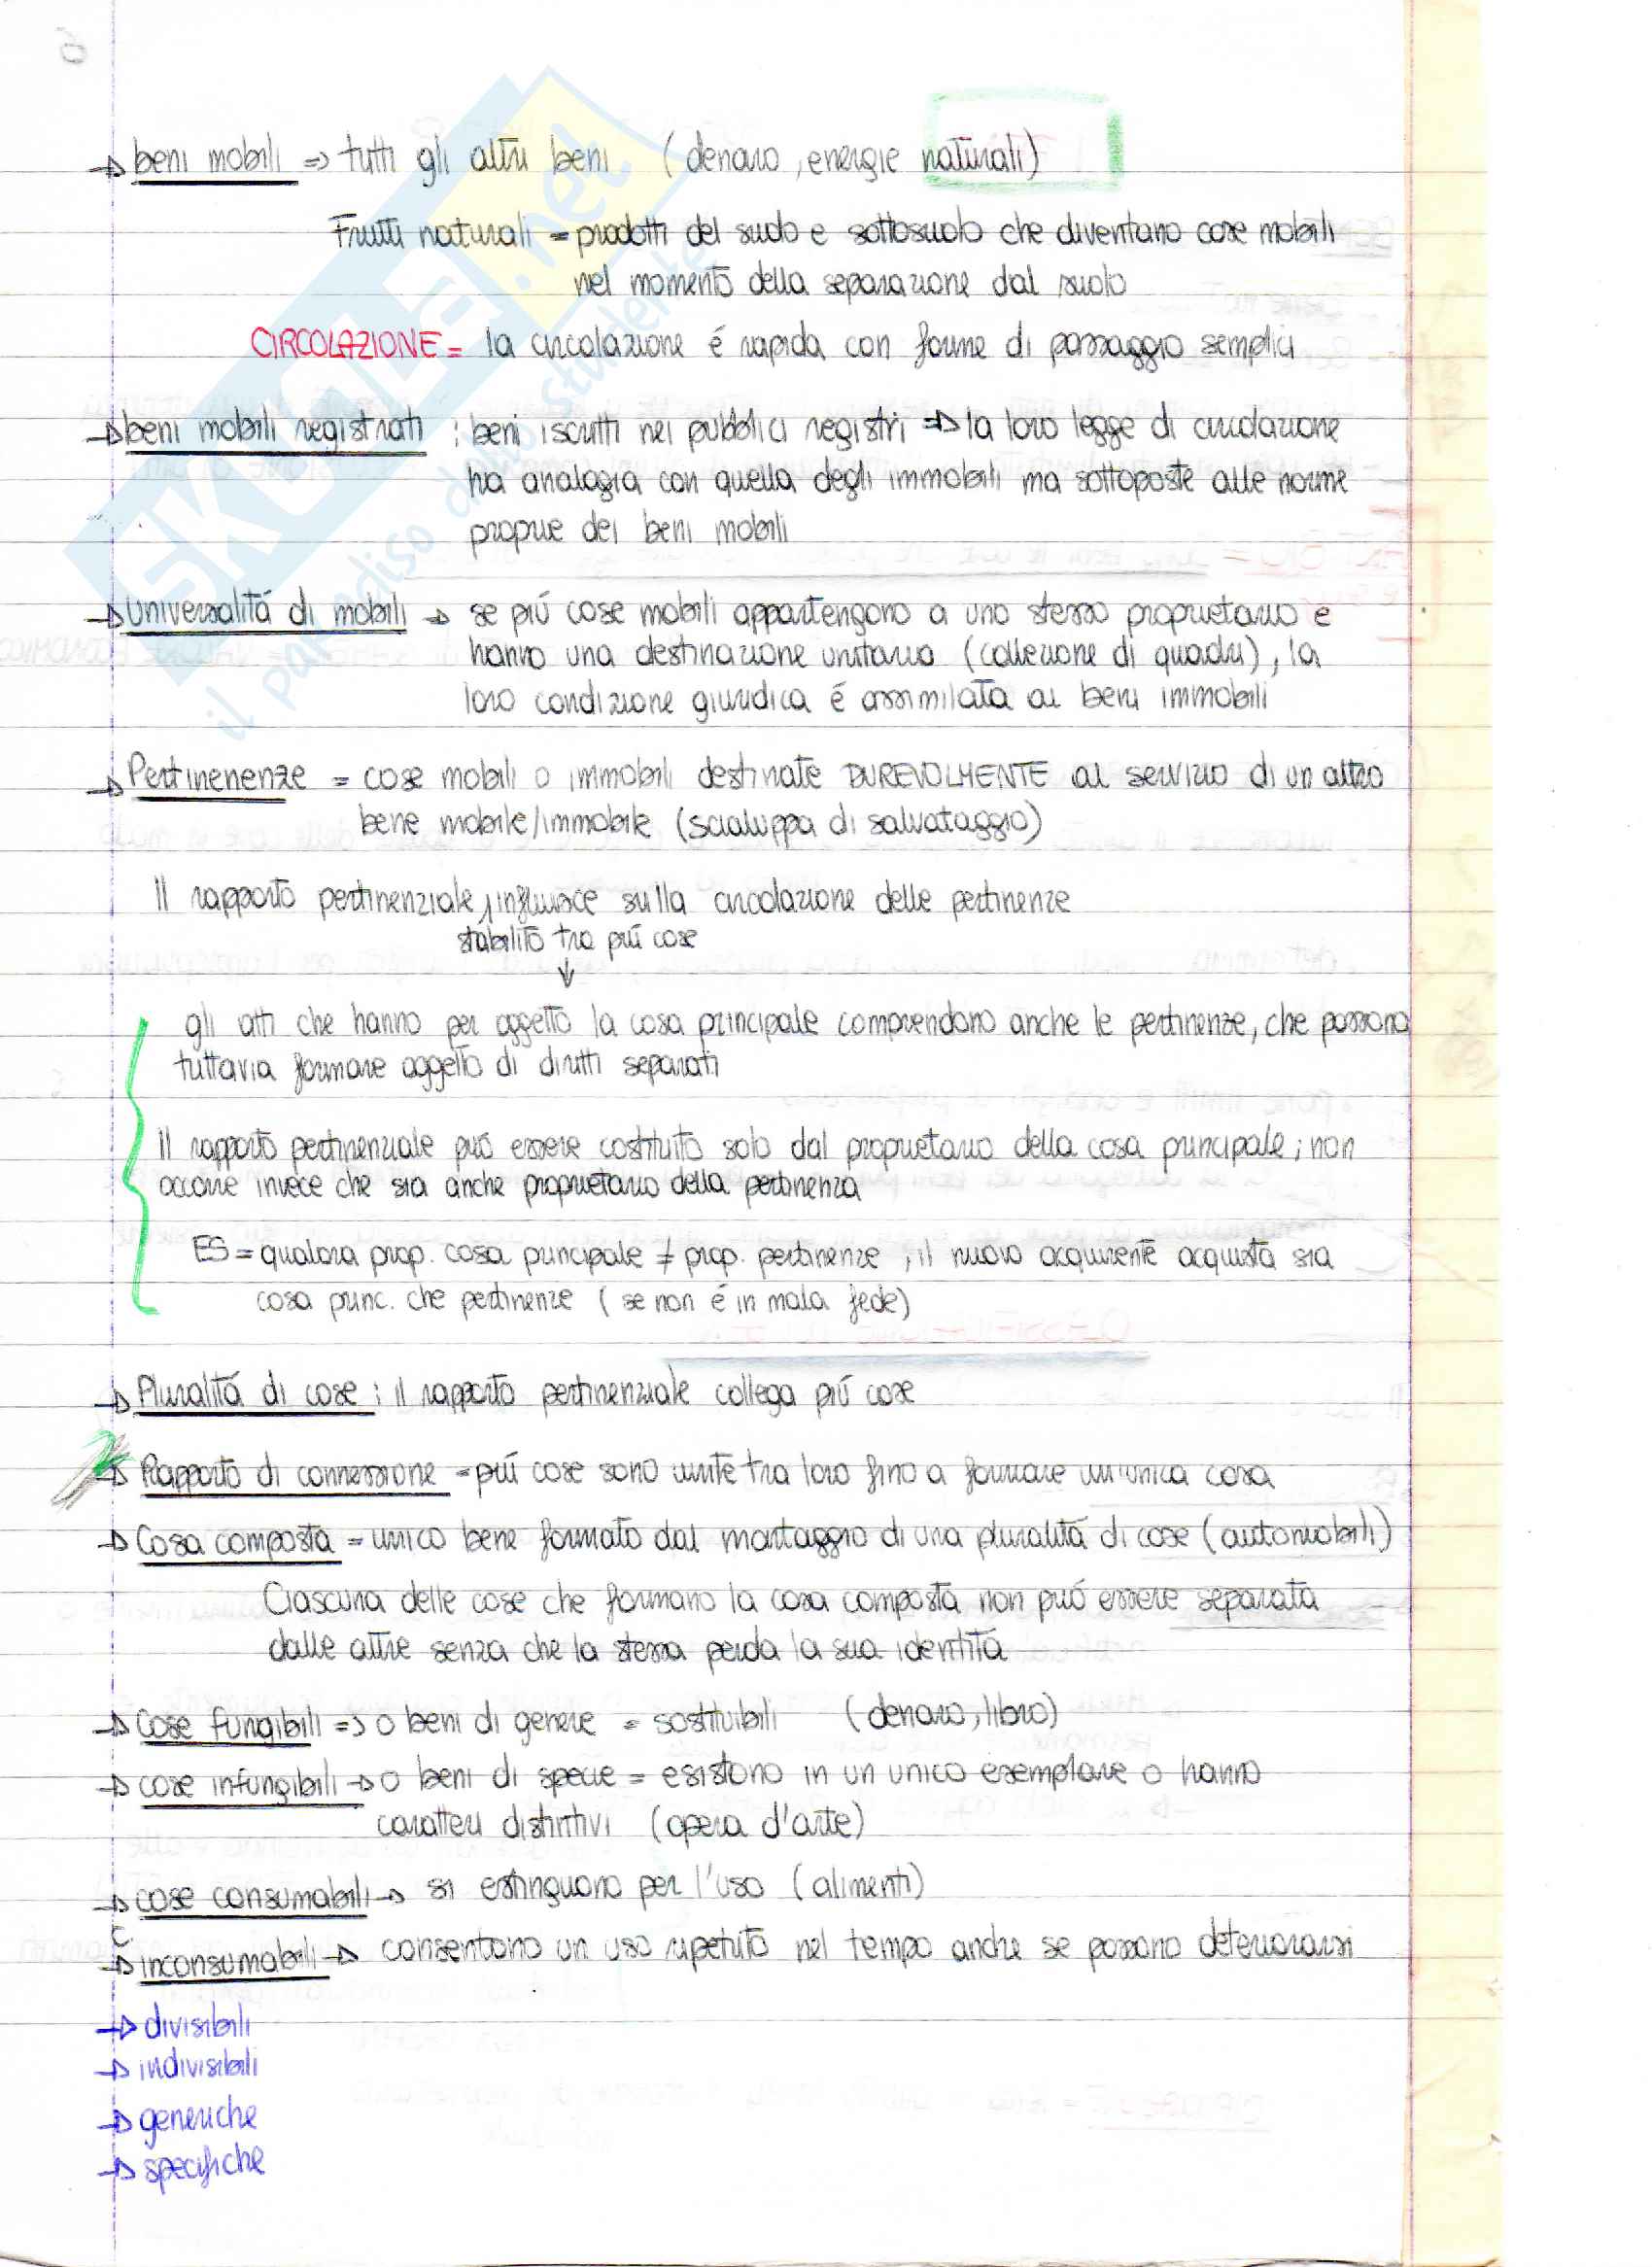 6
→ beni mobili => tutti gli altri beni (denaro, energie naturali)
Frutti naturali = prodotti del suolo e sottosuolo che diventano cose mobili
nel momento della separazione dal suolo
CIRCOLAZIONE = la circolazione é rapida con forme di passaggio semplici
→ beni mobili registrati : beni iscritti nei pubblici registri => la loro legge di circolazione
ha analogia con quella degli immobili ma sottoposte alle norme
proprie dei beni mobili
→ Universalitá di mobili → se piú cose mobili appartengono a uno stesso proprietario e
hanno una destinazione unitaria (collezione di quadri), la
loro condizione giuridica é assimilata ai beni immobili
→ Pertinenenze = cose mobili o immobili destinate DUREVOLMENTE al servizio di un altro
bene mobile/immobile (scialuppa di salvataggio)
Il rapporto pertinenziale, influisce sulla circolazione delle pertinenze
stabilito tra piú cose
↓
gli atti che hanno per oggetto la cosa principale comprendono anche le pertinenze, che possono
tuttavia formare oggetto di diritti separati
Il rapporto pertinenziale puó essere costituito solo dal proprietario della cosa principale; non
occorre invece che sia anche proprietario della pertinenza
ES = qualora prop. cosa principale ≠ prop. pertinenze, il nuovo acquirente acquista sia
cosa princ. che pertinenze (se non é in mala fede)
→ Pluralitá di cose : il rapporto pertinenziale collega piú cose
→ Rapporto di connessione = piú cose sono unite tra loro fino a formare un'unica cosa
→ Cosa composta = unico bene formato dal montaggio di una pluralitá di cose (automobili)
Ciascuna delle cose che formano la cosa composta non puó essere separata
dalle altre senza che la stessa perda la sua identitá
→ Cose fungibili => o beni di genere = sostituibili (denaro, libro)
→ cose infungibili → o beni di specie = esistono in un unico esemplare o hanno
caratteri distintivi (opera d'arte)
→ cose consumabili → si estinguono per l'uso (alimenti)
→ inconsumabili → consentono un uso ripetuto nel tempo anche se possono deteriorarsi
→ divisibili
→ indivisibili
→ generiche
→ specifiche
SKUOLA.net
il paradiso dello studente